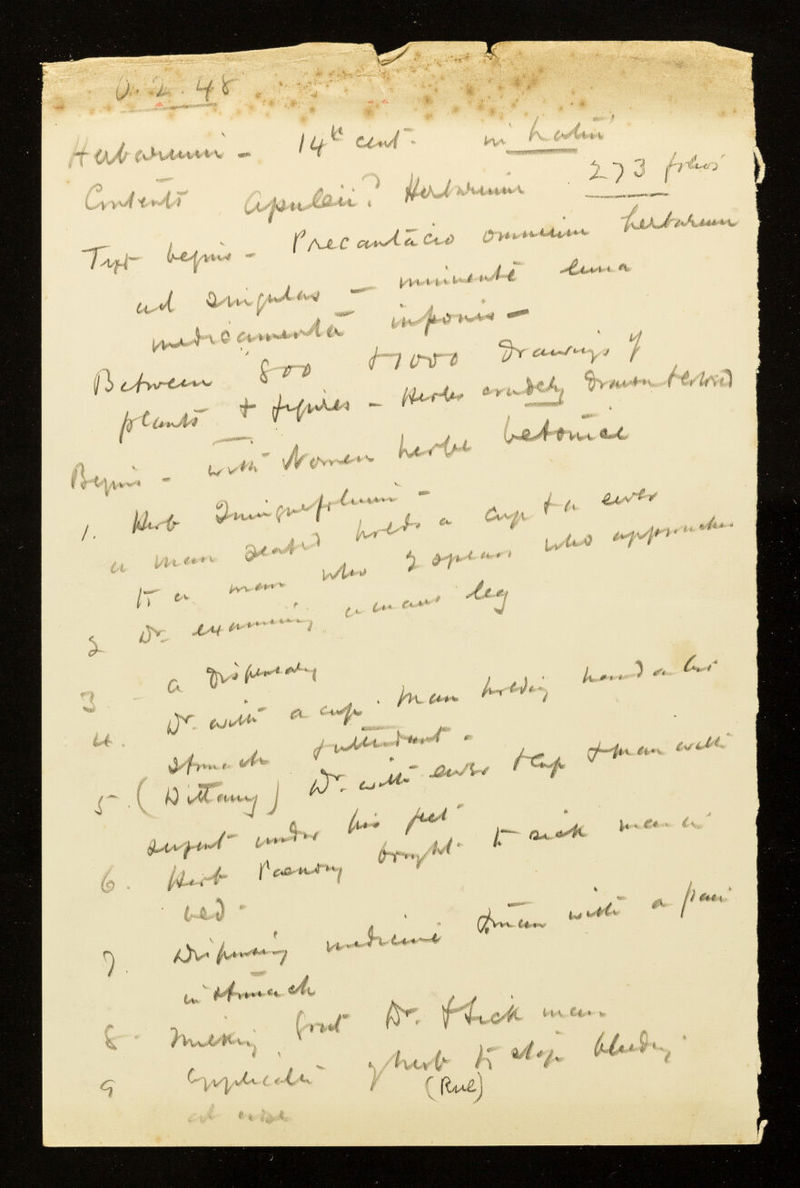 O. 2. 48
Herbarium - 14th cent. in Latin
Contents Apuleii? Herbarium 273 folios
Text begins - Precantacio omnium herbarum
ad singulas - minuente luna
medicamenta inponis -
Between 800 & 1000 drawings of
plants & figures - Herbs crudely drawn & colored
Begins - with Nomen herbe betonice
1. Herb Quinquefolium -
a man seated holds a cup & a ewer
to a man who 2 spears who approaches
2 Dr. examining a mans leg
3 - a Dispensary
4. Dr. with a cup. Man holding hand a his
stomach & attendant -
5. (Dittany) Dr. with ewer & cup & man with
serpent under his feet
6. Herb Paeony brought to sick man in
bed -
7. Dispensing medicine & man with a pain
in stomach
8 - Milking goat Dr. & sick man
9 Application of herb to stop bleeding
(Rue)
at nose